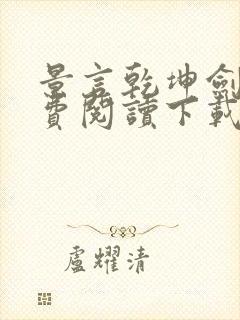 景言乾坤劍
費閱讀下載
盧耀清